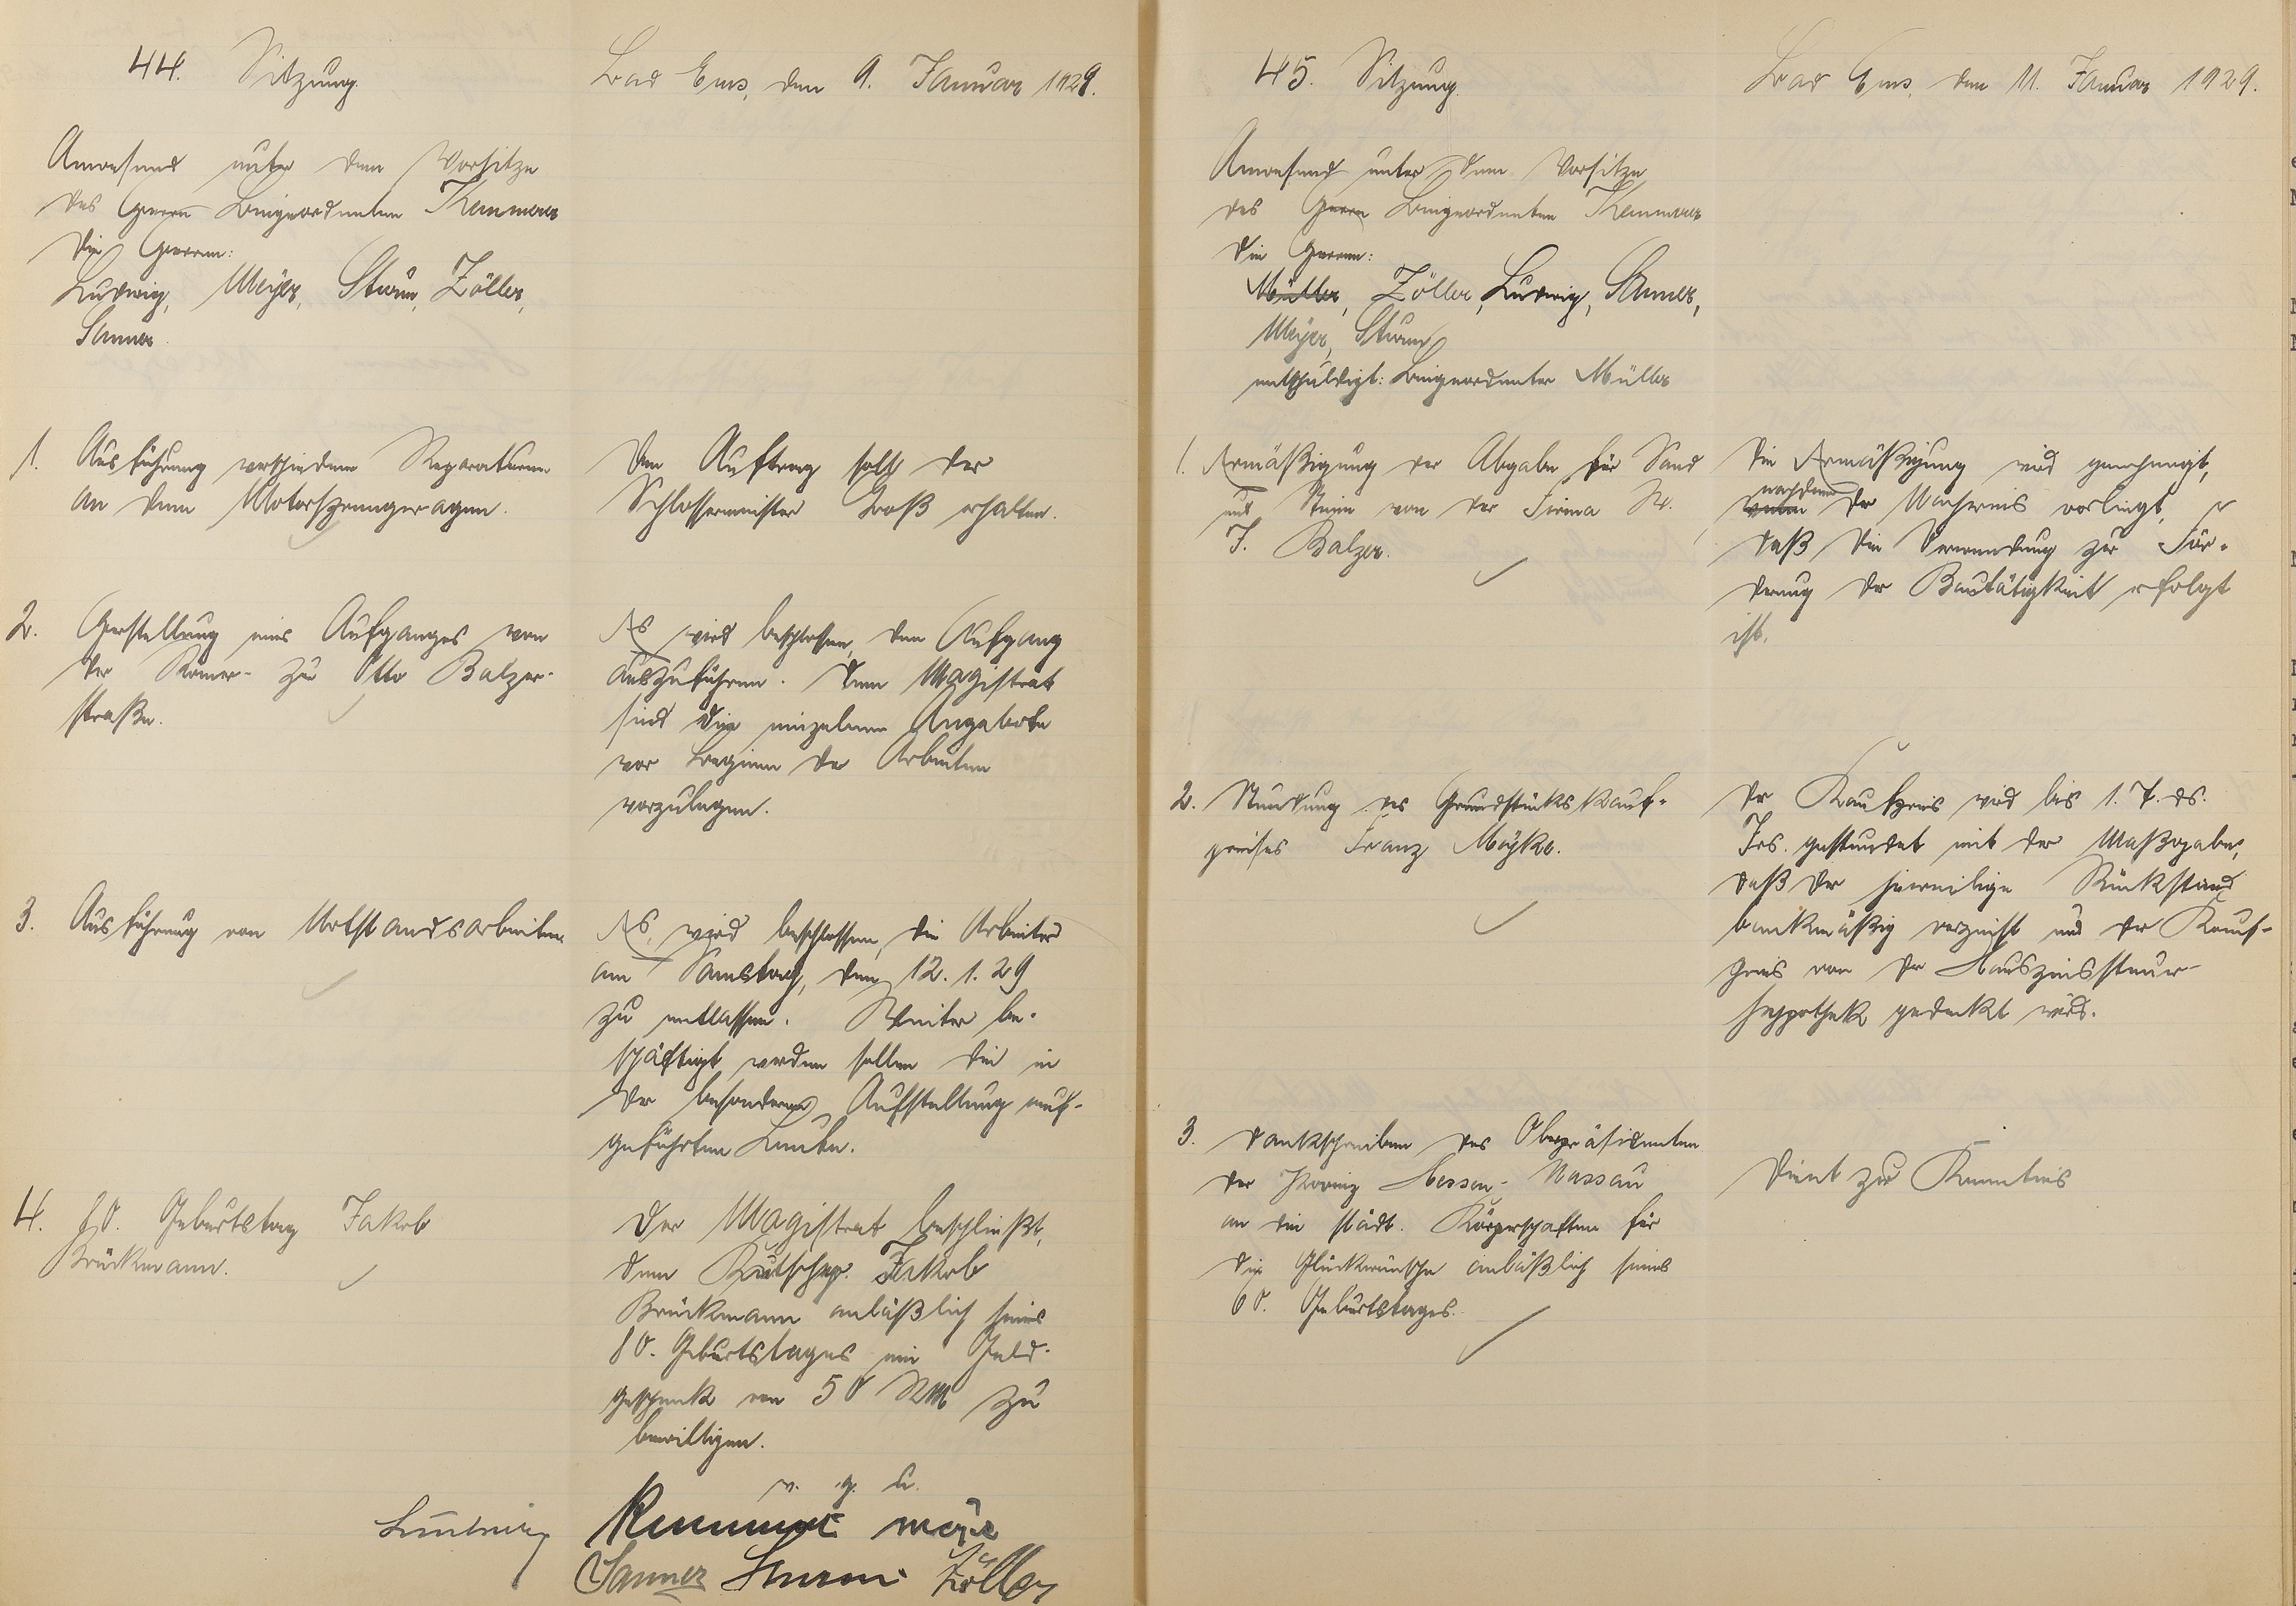 44. Sitzung.
Bad Ems, den 9. Januar 1929.
Anwesend unter dem Vorsitze
des Herrn Beigeordneten Kemmerer
die Herren:
Ludwig, Meyer, Sturm, Zöller,
Sanner
1. Ausführung verschiedener Reparaturen
an dem Motorsprengwagen.
Den Auftrag soll der
Schlossermeister Groß erhalten.
2. Herstellung eines Aufganges von
der Römer- zu Otto Balzer-
straße.
Es wird beschlossen, den Aufgang
auszuführen. Dem Magistrat
sind die einzelnen Angebote
vor Beginn der Arbeiten
vorzulegen.
3. Ausführung von Notstandsarbeiten
Es wird beschlossen, die Arbeiter
am Samstag, den 12.1.29
zu entlassen. Weiter be-
schäftigt werden sollen die in
der besonderen Aufstellung auf-
geführten Leute.
4. 80. Geburtstag Jakob
Brückmann.
Der Magistrat beschließt,
dem Kutscher Jakob
Brückmann anläßlich seines
80. Geburtstages ein Geld-
geschenk von 50 RM zu
bewilligen.
v. g. u.
Ludwig Kemmerer Meyer
Sanner Sturm Zöller
45. Sitzung.
Bad Ems, den 11. Januar 1929.
Anwesend unter dem Vorsitze
des Herrn Beigeordneten Kemmerer
die Herren:
Müller, Zöller, Ludwig, Sanner,
Meyer, Sturm
entschuldigt: Beigeordneter Müller
1. Ermäßigung der Abgabe für Sand
und Steine von der Firma
J. Balzer.
Die Ermäßigung wird genehmigt,
nachdem
wenn der Nachweis vorliegt,
daß die Verwendung zur För-
derung der Bautätigkeit erfolgt
ist.
2. Stundung des Grundstückskauf-
preises Franz Moyke.
Der Kaufpreis wird bis 1.7. ds.
Jrs. gestundet mit der Maßgabe,
daß der jeweilige Rückstand
bankmäßig verzinst und der Kauf-
preis von der Hauszinssteuer-
hypothek gedeckt wird.
3. Dankschreiben des Oberpräsidenten
der Provinz Hessen-Nassau
an die städt. Körperschaften für
die Glückwünsche anläßlich seines
60. Geburtstages.
Dient zur Kenntnis